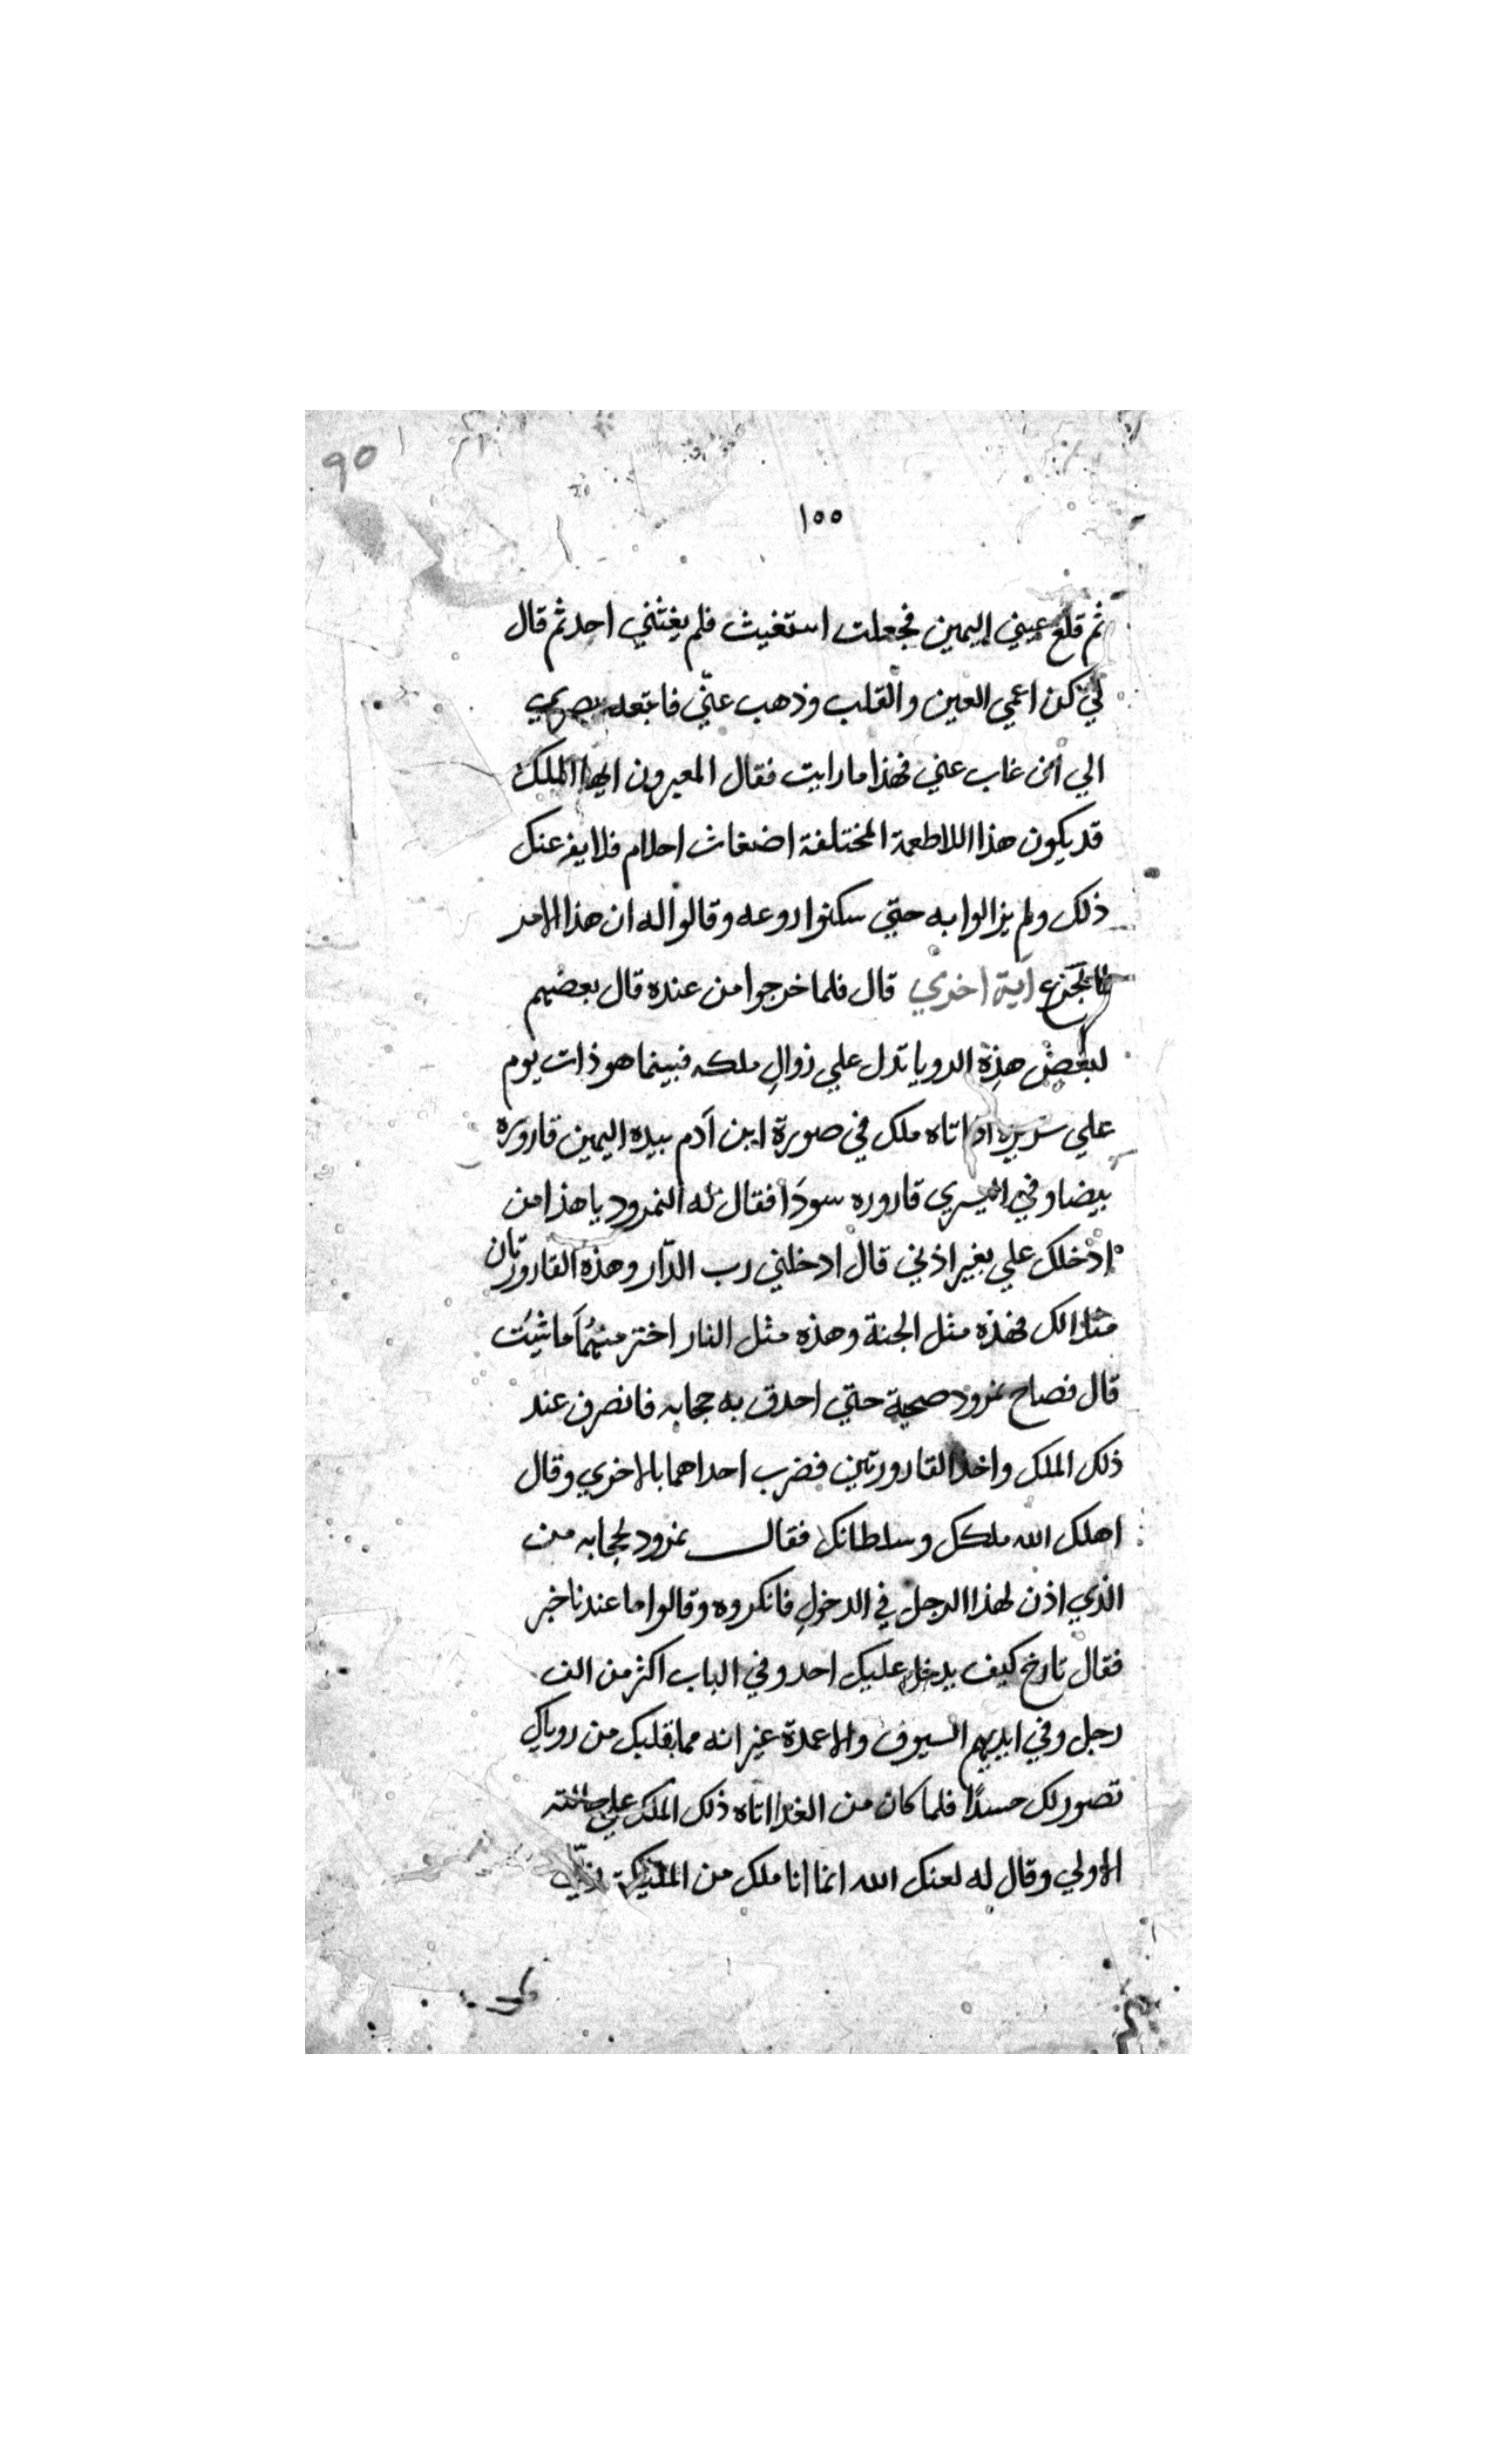 90
١٥٥
ثم قلع عيني اليمين فجعلت استغيث فلم يغثني احد ثم قال
لي كن اعمي العين والقلب وذهب عنّي فاتبعه بصري
الي ان غاب عني فهذا ما رايت فقال المعبرون ايها الملك
قد يكون هذا اللاطعمة المختلفة اضغاث احلام فلا يفزعنك
ذلك ولم يزالوا به حتي سكنوا روعه وقالوا له ان هذا الامر
اية اخري قال فلما خرجوا من عنده قال بعضهم
لبعض هذه الرويا تدل علي زوال ملكه فبينما هو ذات يوم
علي سريره اذ اتاه ملك في صورة ابن آدم بيده اليمين قاروره
بيضا وفي اليسري قاروره سودا فقال له النمرود يا هذا من
ادخلك علي بغير اذني قال ادخلني رب الدّار وهذه القارورتان
مثلا لك فهذه مثل الجنة وهذه مثل النار اختر منهما ما شيت
قال فصاح نمرود صيحة حتي احدق به حجابه فانصرف عند
ذلك الملك واخذ القارورتين فضرب احداهما بالاخري وقال
اهلك الله ملكك وسلطانك فقال نمرود لحجابه من
الذي اذن لهذا الرجل في الدخول فانكروه وقالوا ما عندنا خبر
فقال تارخ كيف يدخل عليك احد وفي الباب اكثر من الف
رجل وفي ايديهم السيوف والاعمدة غير انه مما بقلبك من روياك
تصور لك حسدًا فلما كان من الغد اتاه ذلك الملك علي حالته
الاولي وقال له لعنك الله انما انا ملك من المليكة